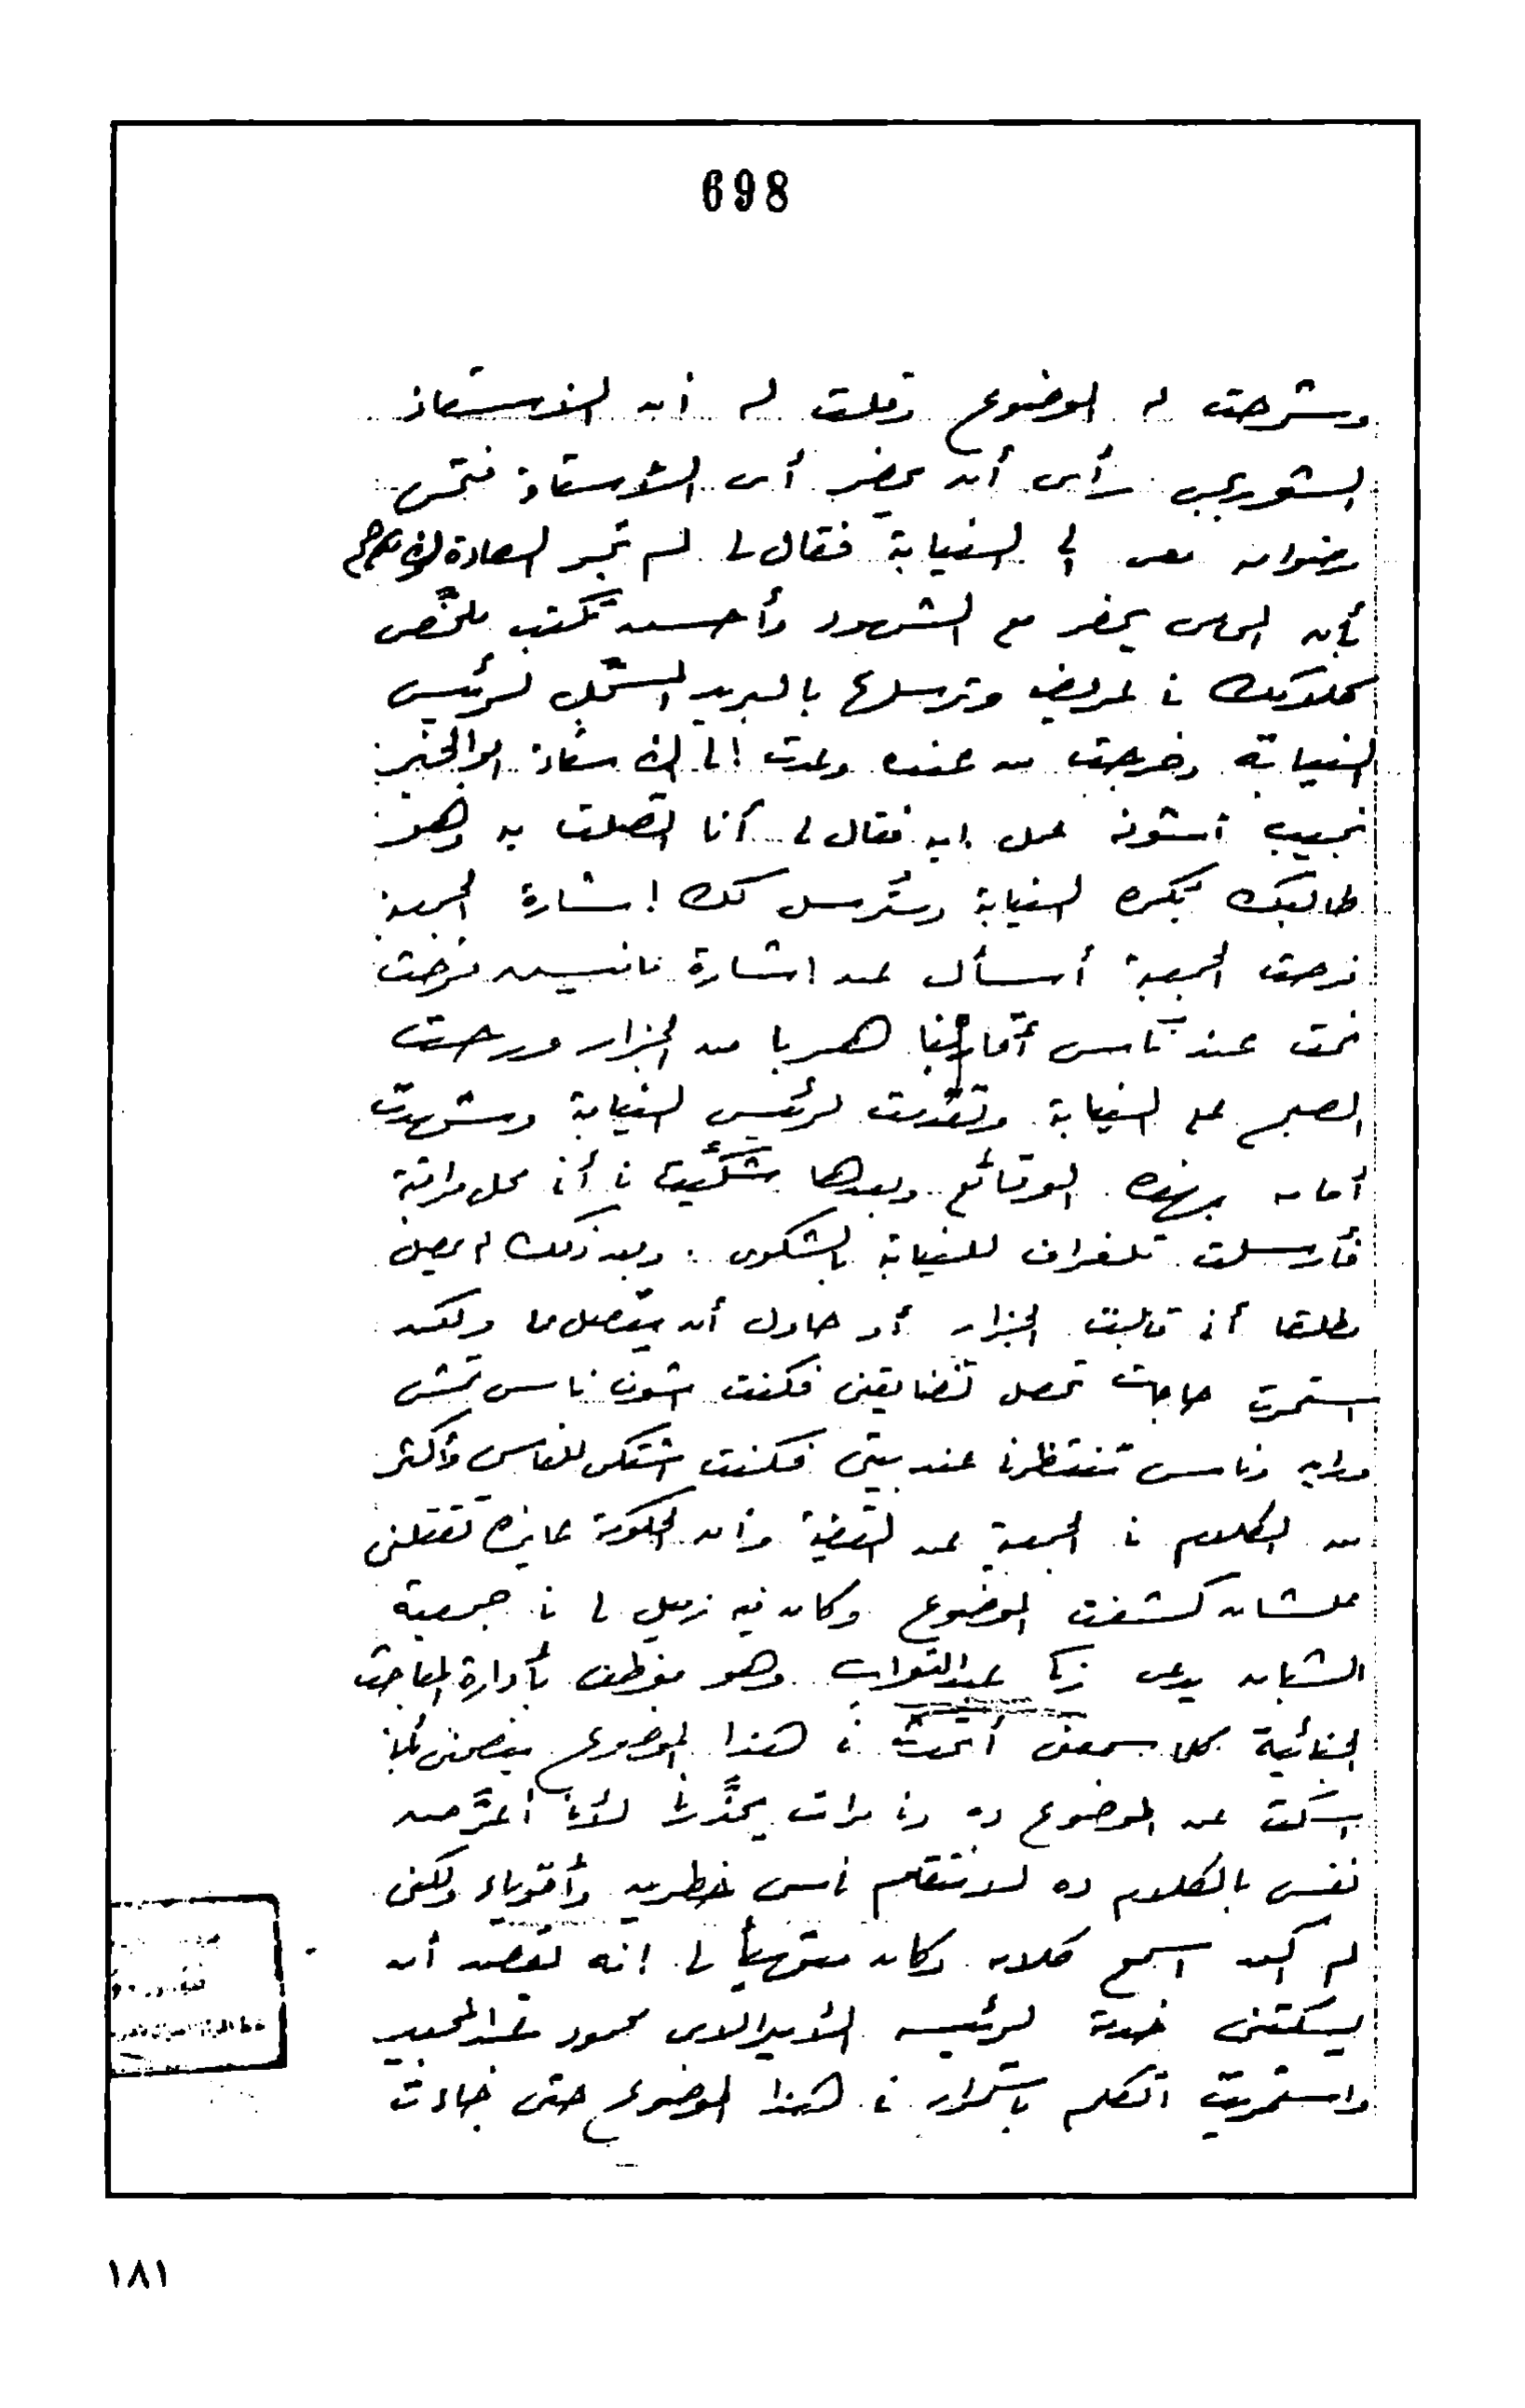 698
وشرحت له الموضوع وقلت له أن الأستاذ
الشوربجى رأى أن يحضر أى الأستاذ فتحى
رضوان معى الى النيابة فقال لى لم تجر العادة
بأن المحامى يحضر مع الشهود وأحسن تكتب ملخص
كلامك فى عريضة وترسلها بالبريد المسجل لرئيس
النيابة وخرجت من عنده وعدت الى الأستاذ ابو الخير
نجيب أشوفه عمل ايه فقال لى أنا اتصلت به وهو
طالبك بكره النيابة وسترسل لك إشارة الجمعية
فرحت الجمعية أسأل عن اشارة
نمت عند ناس أقاربنا هربا من الجزار ورحت
الصبح على النيابة وتقدمت لرئيس النيابة وشهدت
أمامه بهذه الوقائع وبعدها شكيت فى أنى محل مراقبة
فأرسلت تلغراف للنيابة بالشكوى وبعد ذلك لم يحصل
مطلقا أنى قابلت الجزار أو حاول أن يتصل بى ولكن
استمرت حاجات تحصل تضايقنى فكنت اشوف ناس تمشى
ورايه وناس تنتظرنى عند بيتى فكنت اشتكى للناس وأكثر
من الكلام فى الجمعية عن القضية وأن الحكومة عايزه تقتلنى
علشان كشفت الموضوع وكان فيه زميل لى فى جمعية
الشبان يدعى زكى عبد التواب وهو موظف بأدارة المباحث
الجنائية كلما سمعنى أتحدث فى هذا الموضوع ينصحنى بأن
اسكت عن الموضوع ده وفى مرات يحذرنى لأنى أعرض
نفسى بالكلام ده لانتقام ناس خطرين وأقوياء ولكنى
لم أكن اسمع كلامه وكان متهيأ لى انه يقصد أن
يسكتنى خدمة لرئيسه الأميرالاى محمود عبد المجيد
واستمريت اتكلم باستمرار فى هذا الموضوع حتى جاءت
١٨١